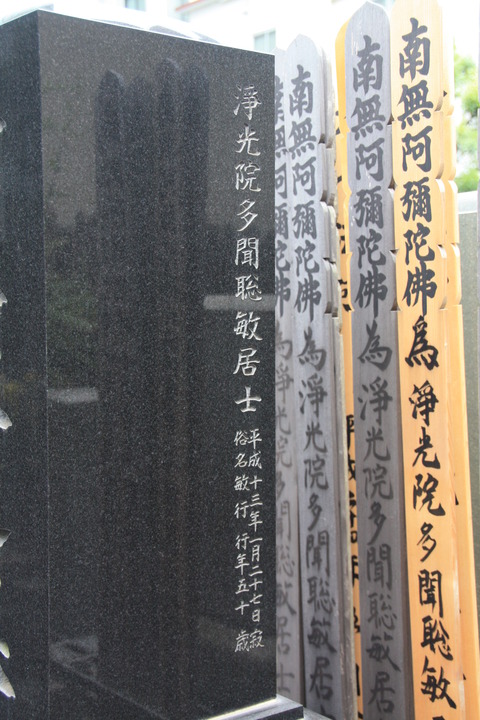 南無阿彌陀佛為淨光院多聞聡敏
南無阿彌陀佛為淨光院多聞聡敏居
南無阿彌陀佛為淨光院多聞聡敏居士
無阿彌陀佛為淨光院多聞聡敏居士
淨光院多聞聡敏居士
平成十三年一月二十七日寂
俗名敏行 行年五十歳